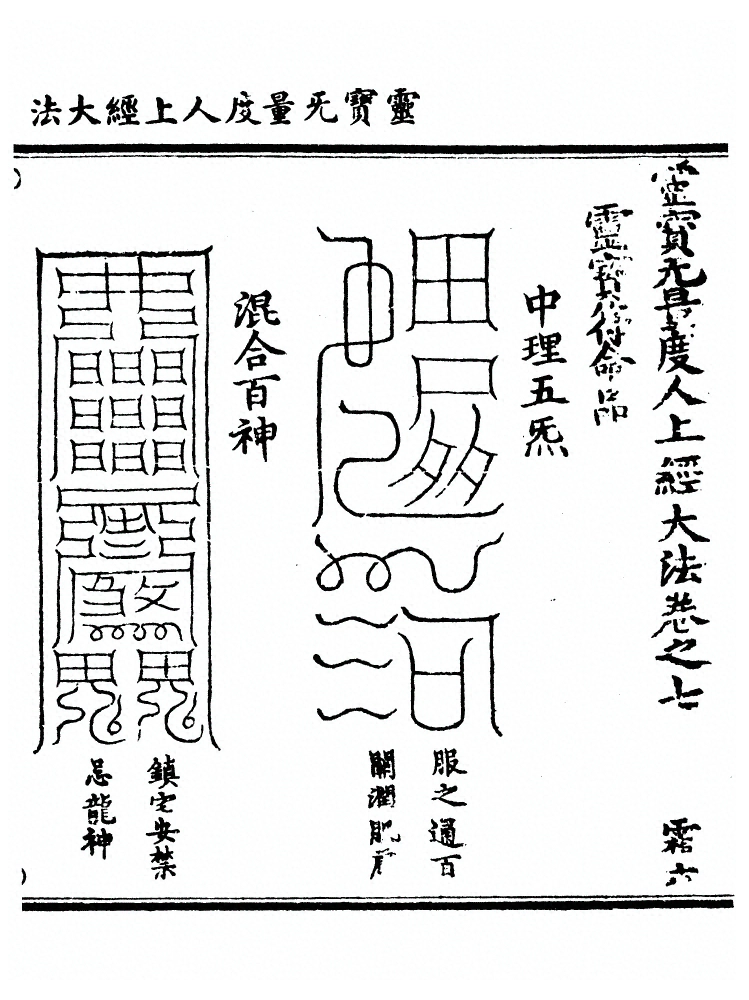 靈寶旡量度人上經大法
靈寶旡量度人上經大法卷之七
霜六
靈寶符命品
中理五炁
服之通百
關潤肌膚
混合百神
鎮宅安禁
忌龍神